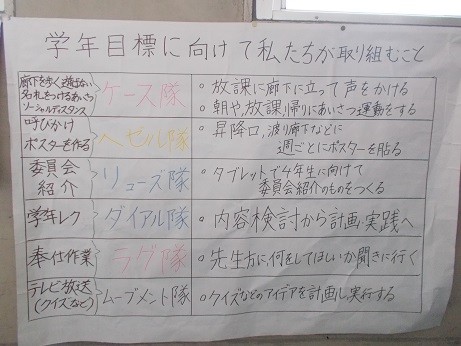 学年目標に向けて私たちが取り組むこと
廊下を歩く、遊ばない
名札をつける、あいさつ
ソーシャルディスタンス
ケース隊
。放課に廊下に立って声をかける
。朝や放課、帰りにあいさつ運動をする
呼びかけ
ポスターを作る
ベゼル隊
。昇降口、渡り廊下などに
週ごとにポスターを貼る
委員会
紹介
リューズ隊
。タブレットで4年生に向けて
委員会紹介のものをつくる
学年レク
ダイアル隊
。内容検討から計画・実践へ
奉仕作業
ラグ隊
。先生方に何をしてほしいか聞きに行く
テレビ放送
(クイズなど)
ムーブメント隊
。クイズなどのアイデアを計画し、実行する